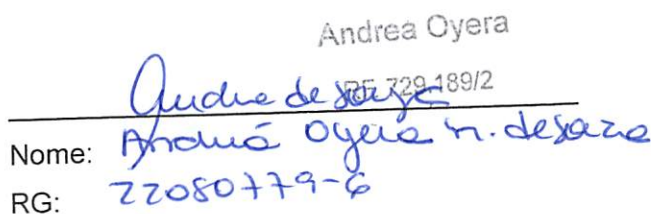 Andrea Oyera
RF 729.189/2
Andrea de Souza
Nome: Andrea Oyera n. de Souza
RG: 22080779-6